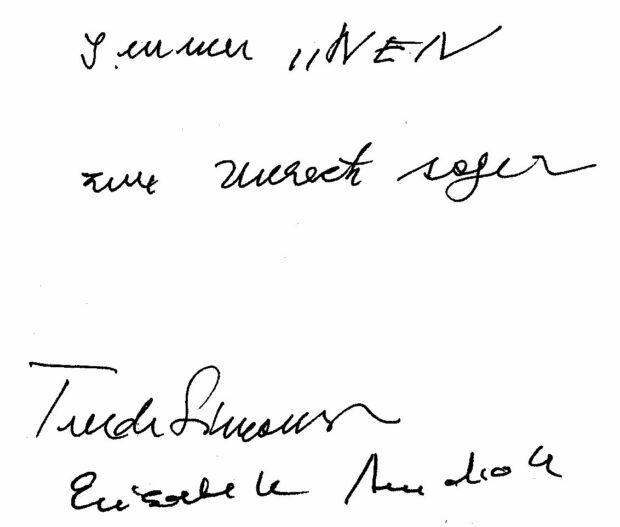 Immer „NEN
zum Unrecht sagen
Trude Simonsohn
Elisabeth Abendroth